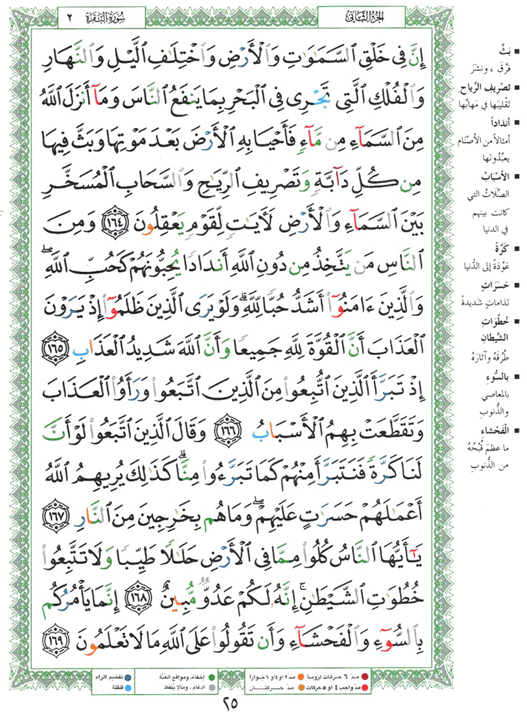 الجزء الثاني
سورة البقرة ٢
إِنَّ فِى خَلْقِ السَّمَٰوَٰتِ وَالْأَرْضِ وَاخْتِلَٰفِ الَّيْلِ وَالنَّهَارِ
وَالْفُلْكِ الَّتِى تَجْرِى فِى الْبَحْرِ بِمَا يَنفَعُ النَّاسَ وَمَآ أَنزَلَ اللَّهُ
مِنَ السَّمَآءِ مِن مَّآءٍ فَأَحْيَا بِهِ الْأَرْضَ بَعْدَ مَوْتِهَا وَبَثَّ فِيهَا
مِن كُلِّ دَآبَّةٍ وَتَصْرِيفِ الرِّيَٰحِ وَالسَّحَابِ الْمُسَخَّرِ
بَيْنَ السَّمَآءِ وَالْأَرْضِ لَءَايَٰتٍ لِّقَوْمٍ يَعْقِلُونَ ١٦٤ وَمِنَ
النَّاسِ مَن يَتَّخِذُ مِن دُونِ اللَّهِ أَندَادًا يُحِبُّونَهُمْ كَحُبِّ اللَّهِ ۖ
وَالَّذِينَ ءَامَنُوٓا۟ أَشَدُّ حُبًّا لِّلَّهِ ۗ وَلَوْ يَرَى الَّذِينَ ظَلَمُوٓا۟ إِذْ يَرَوْنَ
الْعَذَابَ أَنَّ الْقُوَّةَ لِلَّهِ جَمِيعًا وَأَنَّ اللَّهَ شَدِيدُ الْعَذَابِ ١٦٥
إِذْ تَبَرَّأَ الَّذِينَ اتُّبِعُوا۟ مِنَ الَّذِينَ اتَّبَعُوا۟ وَرَأَوُا۟ الْعَذَابَ
وَتَقَطَّعَتْ بِهِمُ الْأَسْبَابُ ١٦٦ وَقَالَ الَّذِينَ اتَّبَعُوا۟ لَوْ أَنَّ
لَنَا كَرَّةً فَنَتَبَرَّأَ مِنْهُمْ كَمَا تَبَرَّءُوا۟ مِنَّا ۗ كَذَٰلِكَ يُرِيهِمُ اللَّهُ
أَعْمَٰلَهُمْ حَسَرَٰتٍ عَلَيْهِمْ ۖ وَمَا هُم بِخَٰرِجِينَ مِنَ النَّارِ ١٦٧
يَٰٓأَيُّهَا النَّاسُ كُلُوا۟ مِمَّا فِى الْأَرْضِ حَلَٰلًا طَيِّبًا وَلَا تَتَّبِعُوا۟
خُطُوَٰتِ الشَّيْطَٰنِ ۚ إِنَّهُۥ لَكُمْ عَدُوٌّ مُّبِينٌ ١٦٨ إِنَّمَا يَأْمُرُكُم
بِالسُّوٓءِ وَالْفَحْشَآءِ وَأَن تَقُولُوا۟ عَلَى اللَّهِ مَا لَا تَعْلَمُونَ ١٦٩
■ بَثَّ
فرَّقَ ، ونشرَ
■ تَصْرِيفِ الرِّياحِ
تَقْلِيبِهَا في مَهَابِّها
■ أنداداً
أمثالاً من الأصْنَام
يعبُدُونَها
■ الأسْبَابُ
الصِّلاتُ التي
كانت بينهم
في الدنيا
■ كَرَّةً
عَوْدَةً إلى الدُّنيا
■ حَسَرَاتٍ
نَدَاماتٍ شديدةً
■ خُطُوَاتِ
الشيْطانِ
طُرُقَهُ وآثارَهُ
■ بالسُّوءِ
بالمعاصي
والذُّنوبِ
■ الْفَحْشاء
ما عظمَ قُبْحُهُ
من الذُّنوبِ
مدّ ٦ حركات لزوماً
مدّ ٢ أو ٤ أو ٦ جوازاً
إخفاء، ومواقع الغنّة
تفخيم الراء
مدّ واجب ٤ أو ٥ حركات
مدّ حركتان
ادغام ، ومالا يلفظ
قلقلة
٢٥